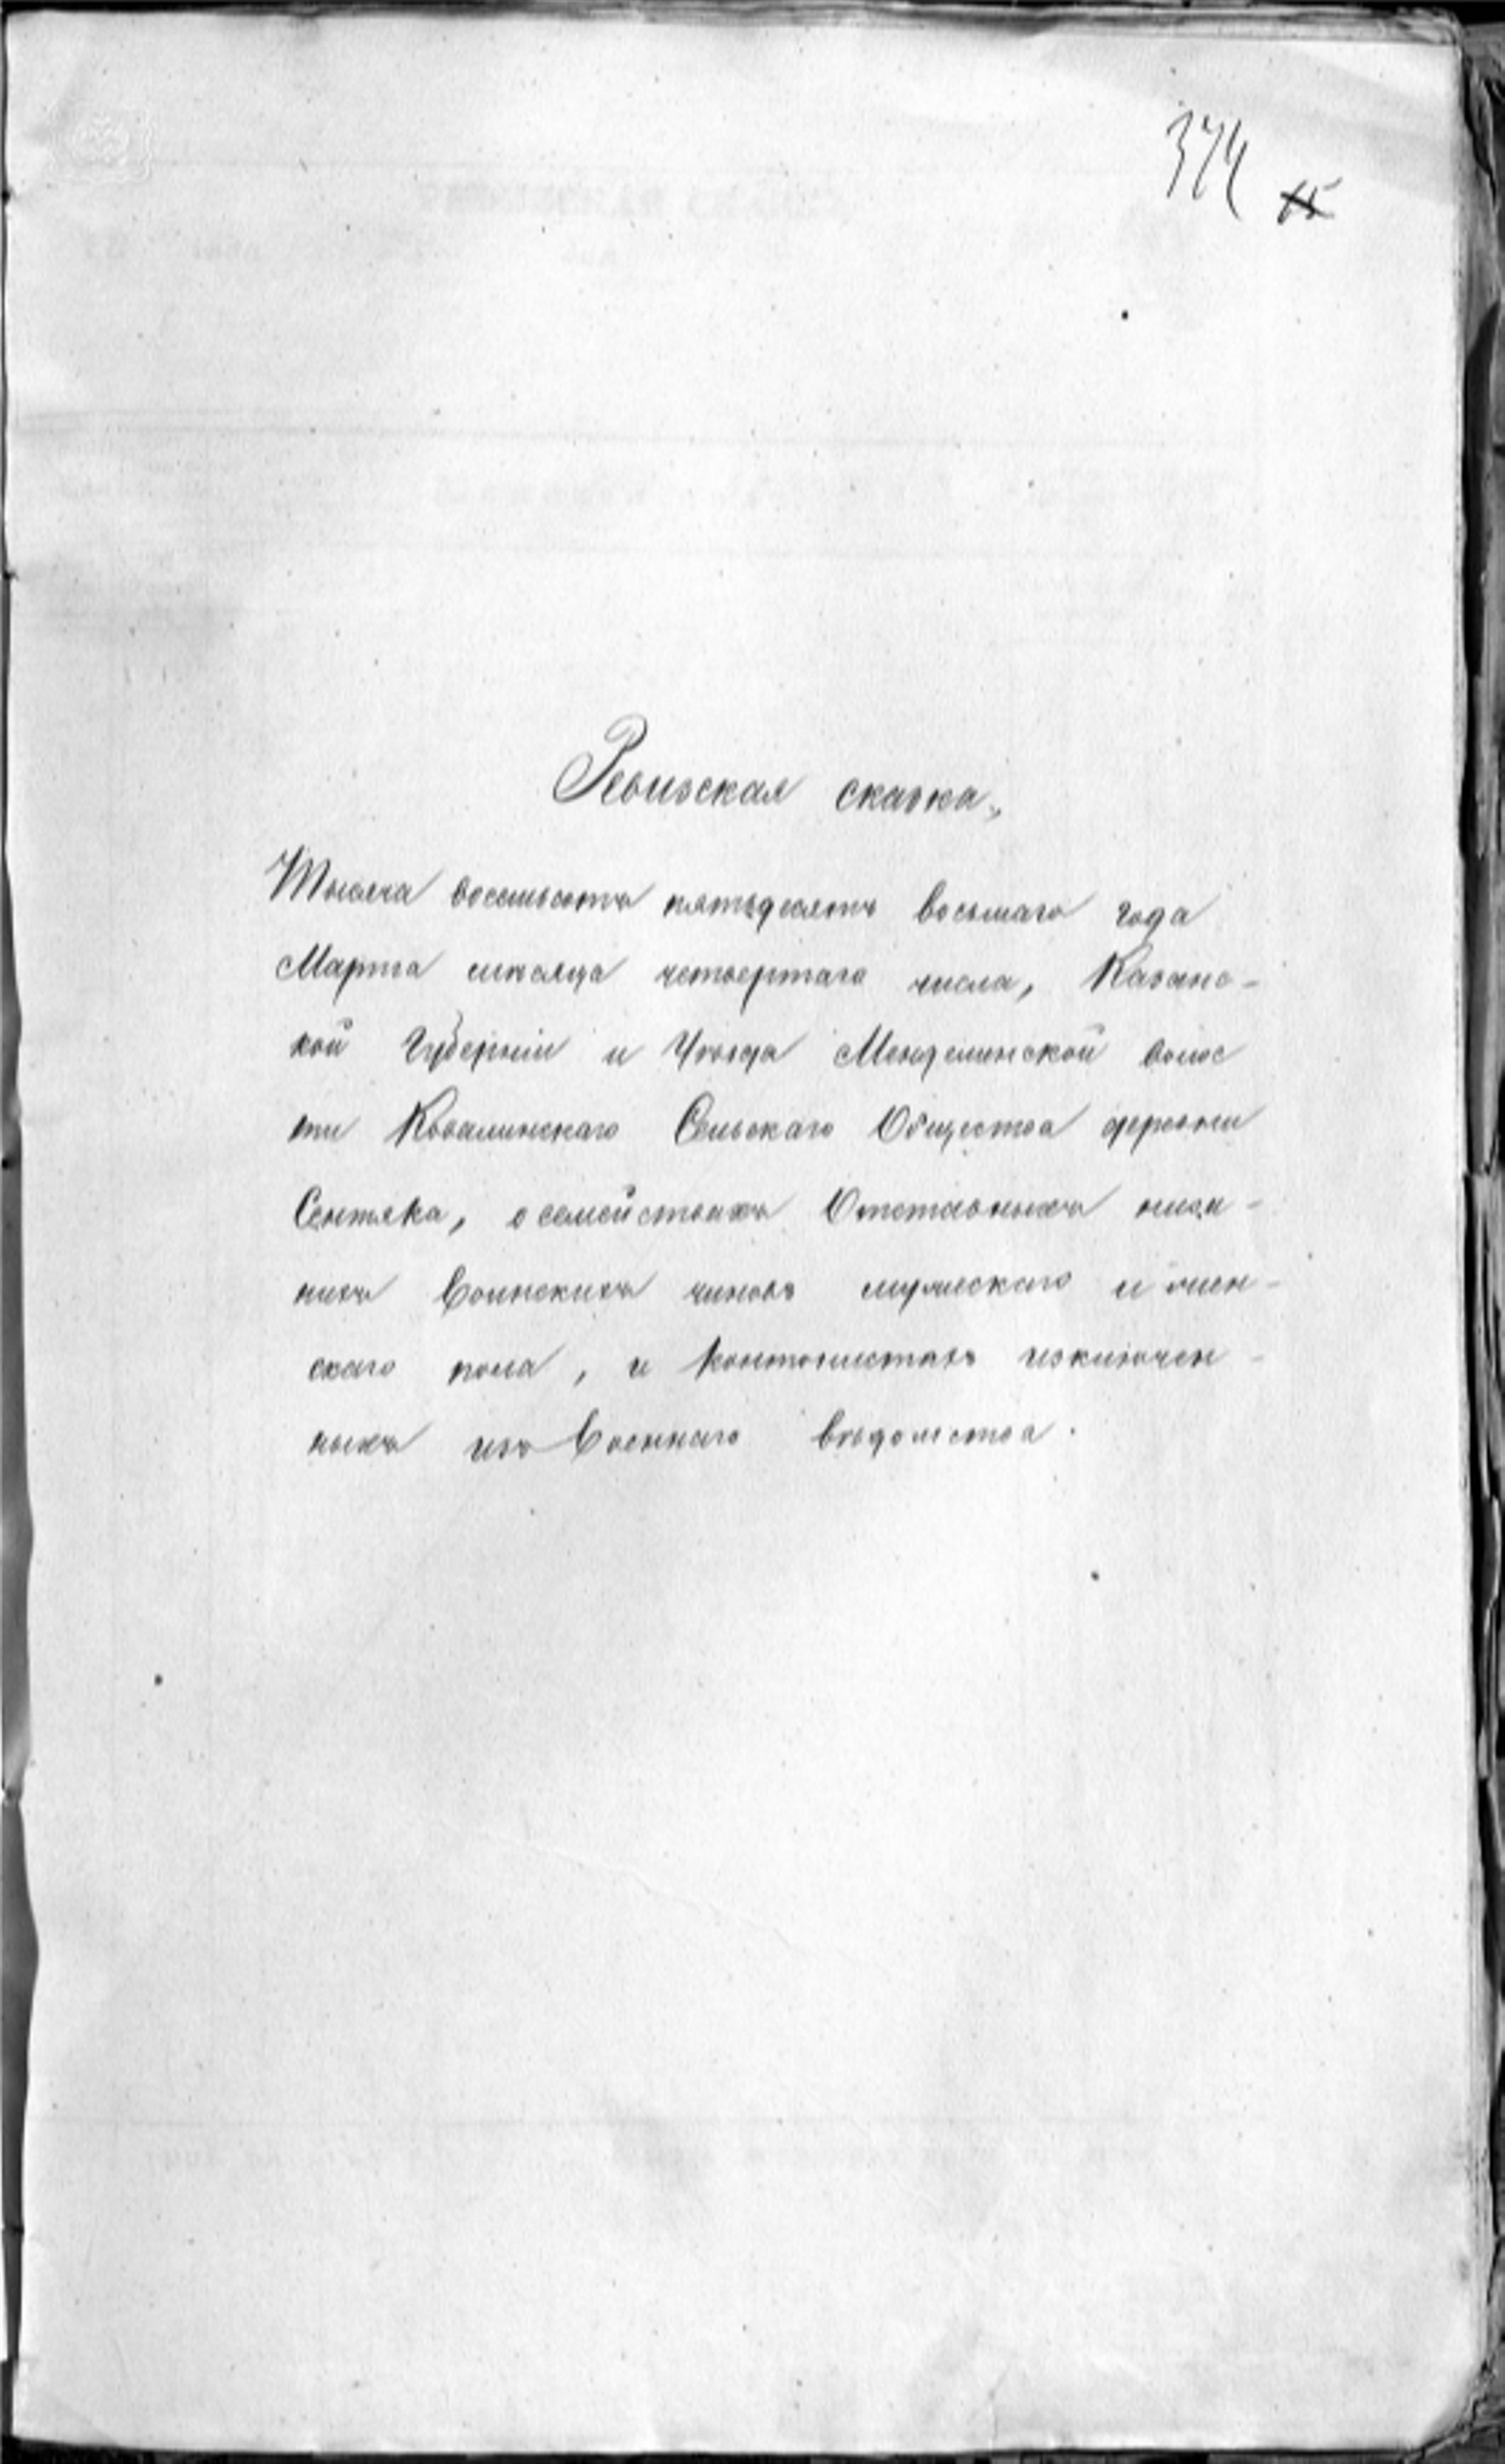 374 15
Ревизская сказка,,
Тысяча восемьсотъ пятьдесятъ восьмаго года
Марта мѣсяца четвертаго числа, Казанс-
кой Губерніи и Уѣзда Менделинской волос
ти Ковалинскаго Сельскаго Общества деревни
Сентяка, о семействахъ Отставныхъ ниж-
нихъ Воинскихъ чиновъ мужескаго и жен-
скаго пола, и Контонистахъ изключен-
ныхъ изъ Военнаго вѣдомства.